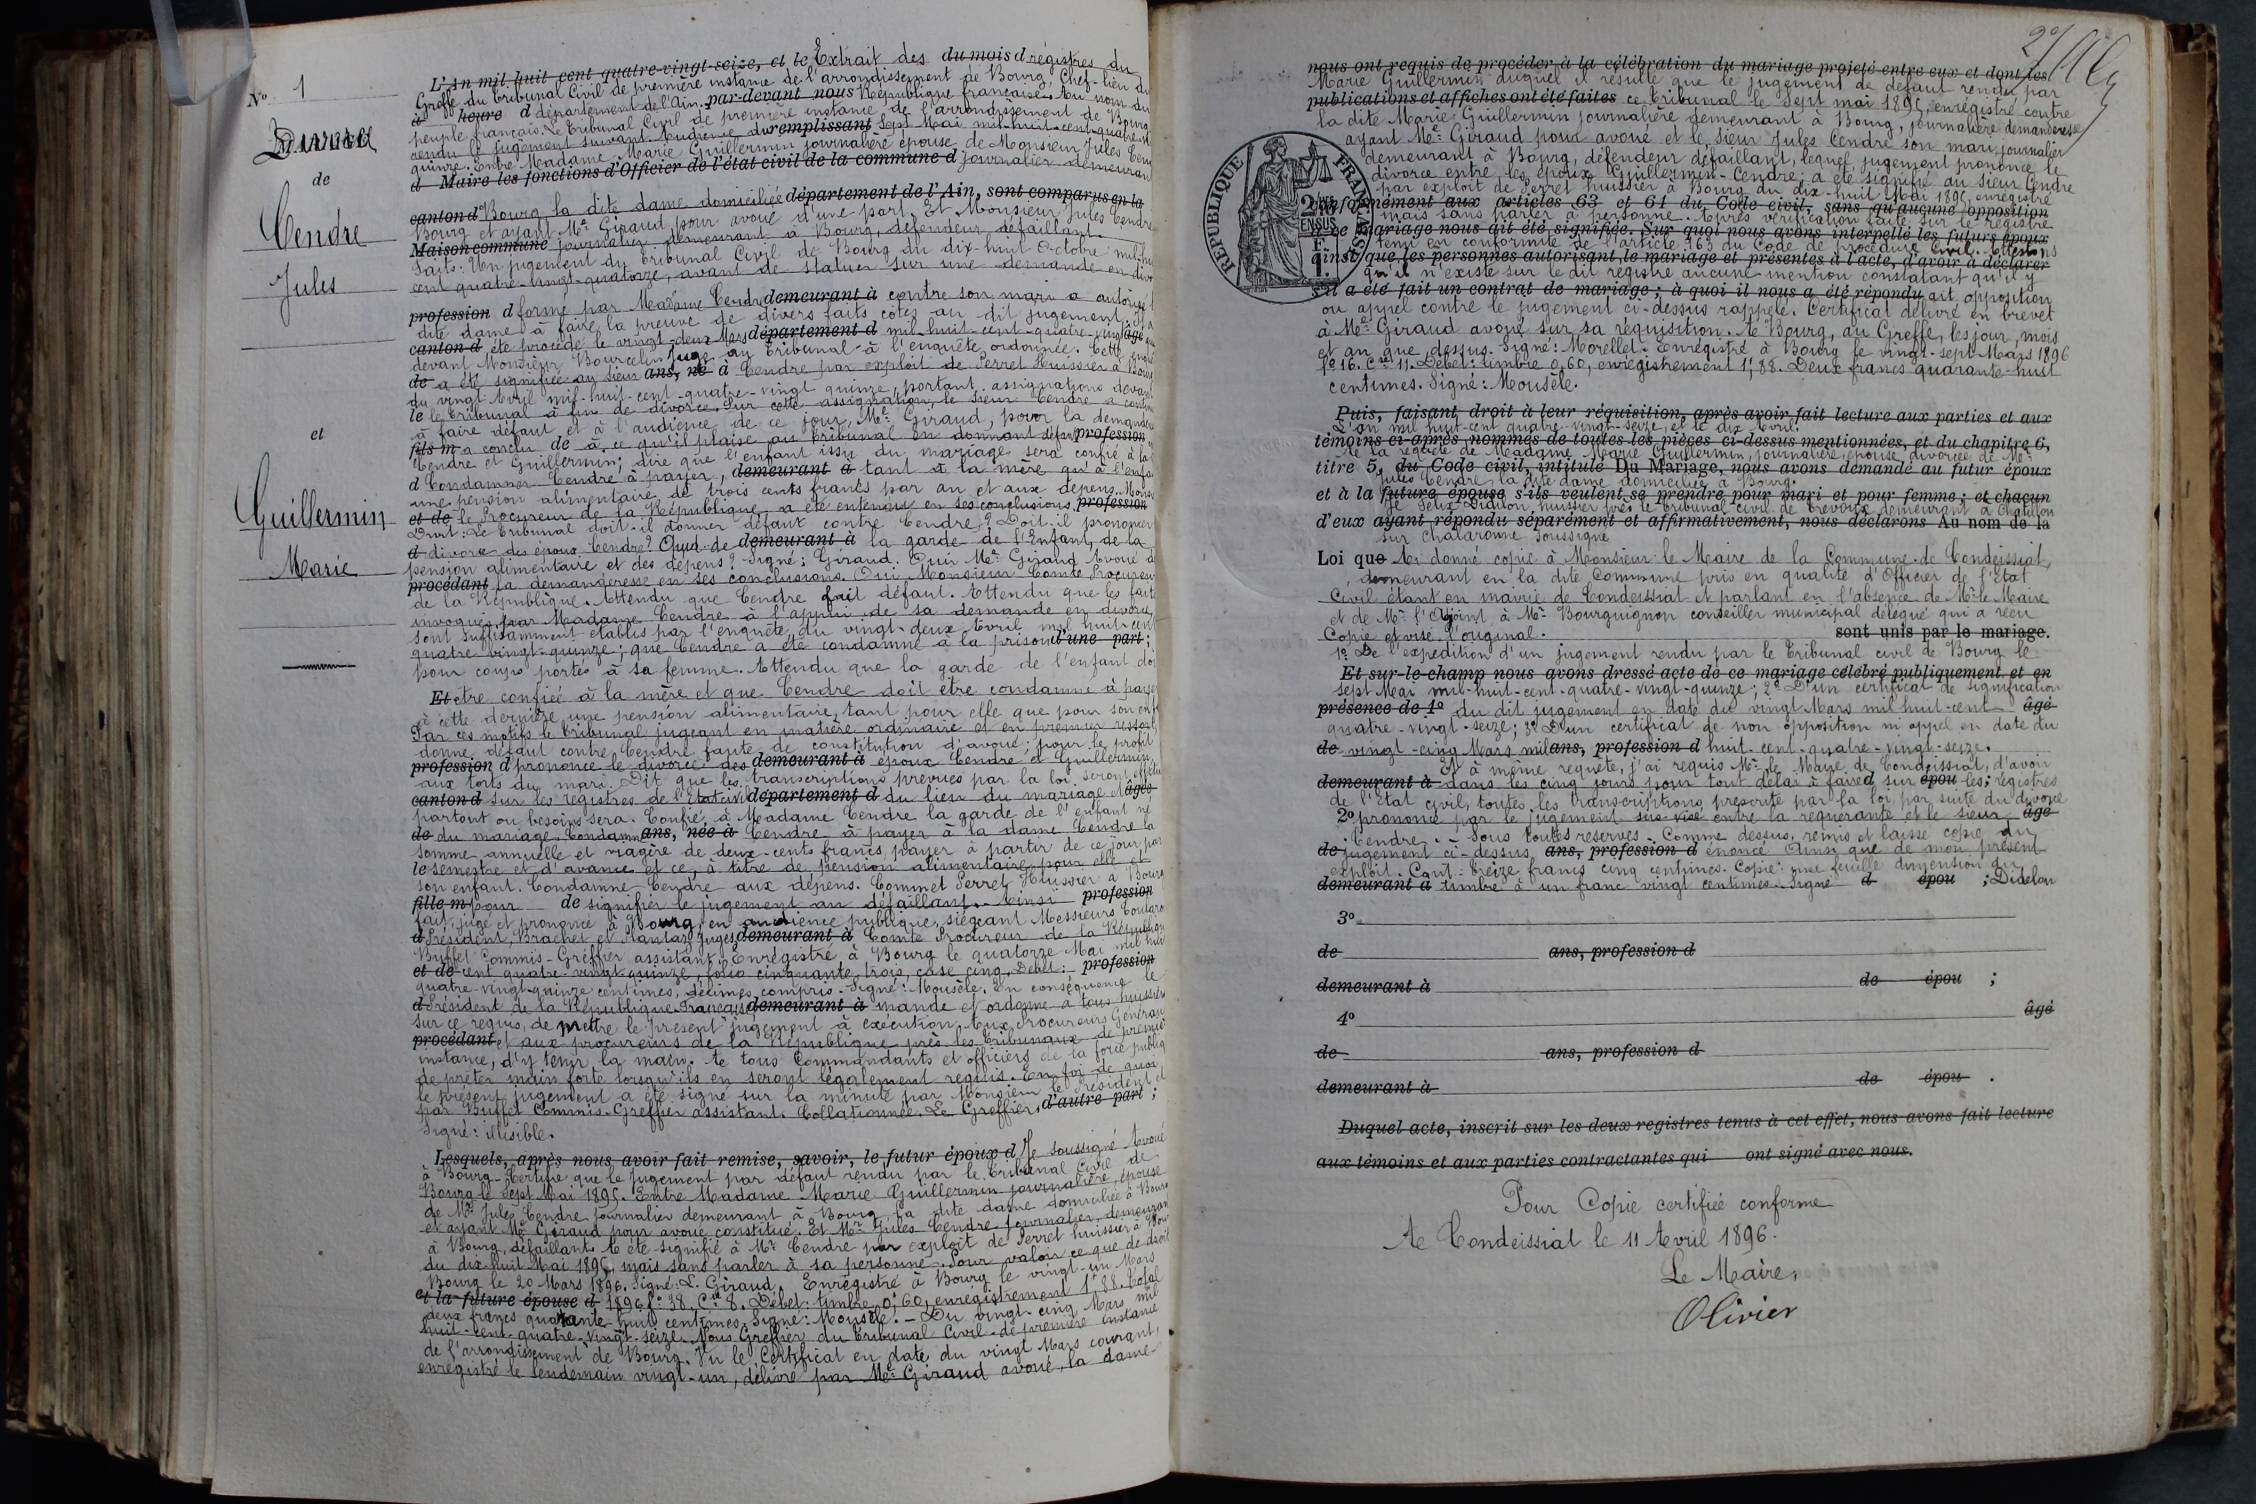 N° 1
Divorce
de
Cendre
Jules
et
Guillermin
Marie
L'An mil huit cent quatre-vingt-seize, et le Extrait des du mois d régistres du
Greffe du Tribunal Civil de première instance de l'arrondissement de Bourg Chef-lieu du
à heure d département de l'Ain. par-devant nous République française. Au nom du
peuple français. Le Tribunal Civil de première instance de l'arrondissement de Bourg
rendu le jugement suivant. Audience du remplissant Sept Mai mil-huit-cent-quatre-vingt
quinze. Entre Madame Marie Guillermin journalière épouse de Monsieur Jules Cend
d Maire les fonctions d'Officier de l'état civil de la commune d journalier demeurant
canton d Bourg la dite dame domiciliée département de l'Ain, sont comparus en la
Bourg et ayant Me Giraud pour avoué d'une part. Et Monsieur Jules Cendre
Maison commune journalier demeurant à Bourg, défendeur défaillant.
Faits: Un jugement du Tribunal Civil de Bourg du dix-huit Octobre mil-hu
cent quatre-vingt-quatorze, avant de statuer sur une demande en divo
profession d formé par Madame Cendre demeurant à contre son mari a autorisé l
dite dame à faire la preuve de divers faits côtés au dit jugement, il a
canton d été procédé le vingt-deux Mars département d mil-huit-cent-quatre-vingt âgé
devant Monsieur Bourcelin Juge au Tribunal à l'enquête ordonnée. Cette enquê
de a été signifiée au sieur ans, né à Cendre par exploit de Perret Huissier à Bourg
du vingt Avril mil-huit-cent-quatre-vingt quinze, portant assignations devant
le le Tribunal à fin de divorce. Sur cette assignation, le sieur Cendre a continu
à faire défaut et à l'audience de ce jour, Me Giraud, pour la demander
fils m a conclu de à ce qu'il plaise au tribunal en donnant défaut profession
Cendre et Guillermin; dire que l'enfant issu du mariage sera confié à la
d Condamner Cendre à payer, demeurant à tant à la mère qu'à l'enfant
une pension alimentaire de trois cents francs par an et aux dépens. Monsi
et de le Procureur de la République a été entendu en ses conclusions. profession
Droit: Le Tribunal doit-il donner défaut contre Cendre? Doit-il prononcer
d divorce des époux Cendre? Quid de demeurant à la garde de l'Enfant, de la
pension alimentaire et des dépens? Signé: Giraud. Ouï Me Giraud Avoué d
procédant la demanderesse en ses conclusions. Ouï Monsieur Comte Procureur
de la République. Attendu que Cendre fait défaut. Attendu que les faits
invoqués par Madame Cendre à l'appui de sa demande en divorce
sont suffisamment établis par l'enquête du vingt-deux Avril mil huit-cent
quatre vingt-quinze; que Cendre a été condamné à la prison d'une part;
pour coups portés à sa femme. Attendu que la garde de l'enfant do
Et être confiée à la mère et que Cendre doit être condamné à payer
à cette dernière une pension alimentaire, tant pour elle que pour son enf
Par ces motifs le Tribunal jugeant en matière ordinaire et en premier ressort
donne défaut contre Cendre faute de constitution d'avoué; pour le profit
profession d prononce le divorce des demeurant à époux Cendre et Guillermin
aux torts du mari. Dit que les transcriptions prévues par la loi seront effectu
canton d sur les régistres de l'état civil département d du lieu du mariage et âgée
partout où besoin sera. Confie à Madame Cendre la garde de l'enfant né
de du mariage. Condamne ans, née à Cendre à payer à la dame Cendre la
somme annuelle et viagère de deux-cents francs, payer à partir de ce jour par
le semestre et d'avance et ce, à titre de pension alimentaire pour elle et
son enfant. Condamne Cendre aux dépens. Commet Perret Huissier à Bourg
fille m pour de signifier le jugement au défaillant. Ainsi profession
fait, jugé et prononcé à Bourg en audience publique, siégeant Messieurs
d Président, Brachet et juges, demeurant à Comte Procureur de la République
Buffet Commis-Greffier assistant. Enregistré à Bourg le quatorze Mai mil huit
et de cent quatre-vingt-quinze, folio cinquante trois, case cinq. Débet: profession
quatre-vingt-quinze centimes, décimes compris. Signé: Mousèle. En conséquence le
d Président de la République Française demeurant à mande et ordonne à tous huissiers
sur ce requis, de mettre le présent jugement à exécution. Aux Procureurs Généraux
procédant et aux procureurs de la République près les Tribunaux de premiè
instance, d'y tenir la main. A tous Commandants et officiers de la force publiq
de prêter main forte lorsqu'ils en seront légalement requis. En foi de quoi
le présent jugement a été signé sur la minute par Monsieur le Président et
par Buffet Commis-Greffier assistant. Collationné. Le Greffier d'autre part;
Signé: illisible.
Lesquels, après nous avoir fait remise, savoir, le futur époux d Je soussigné Avoué
à Bourg. Certifie que le jugement par défaut rendu par le Tribunal Civil de
Bourg le Sept Mai 1895. Entre Madame Marie Guillermin journalière, épouse
de Mr Jules Cendre journalier demeurant à Bourg, la dite dame domiciliée à Bourg
et ayant Me Giraud pour avoué constitué. Et Mr Jules Cendre journalier, demeurant
à Bourg, défaillant. A été signifié à Mr Cendre par exploit de Perret huissier à Bour
du dix-huit Mai 1895, mais sans parler à sa personne. Pour valoir ce que de droit
Bourg le 20 Mars 1896. Signé: L. Giraud. Enregistré à Bourg le vingt-un Mars
et la future épouse d 1896 f° 38. Ce 8. Débet: timbre 0f,60, enregistrement 1f 88. Total
deux francs quarante-huit centimes. Signé: Mousèle. - Du vingt-cinq Mars mil
huit-cent-quatre-vingt-seize. Nous Greffier du Tribunal Civil de première instance
de l'arrondissement de Bourg. Vu le Certificat en date du vingt Mars courant,
enregistré le lendemain vingt-un, délivré par Me Giraud avoué, la dame
nous ont requis de procéder à la célébration du mariage projeté entre eux et dont les
Marie Guillermin duquel il résulte que le jugement de défaut rendu par
publications et affiches ont été faites ce Tribunal le Sept mai 1895, enregistré contre
la dite Marie Guillermin journalière demeurant à Bourg, journalière demanderesse
ayant Me Giraud pour avoué et le sieur Jules Cendre son mari journalier
demeurant à Bourg, défendeur défaillant, lequel jugement prononce le
divorce entre les époux Guillermin-Cendre; a été signifié au sieur Cendre
par exploit de Perret huissier à Bourg du dix-huit Mai 1895, enregistré
conformément aux articles 63 et 64 du Code civil, sans qu'aucune opposition
mais sans parler à personne. Après vérification faite sur le registre
à ce mariage nous ait été signifiée. Sur quoi nous avons interpellé les futurs époux
tenu en conformité de l'article 163 du Code de procédure Civil. Attestons
ainsi que les personnes autorisant le mariage et présentes à l'acte, d'avoir à déclarer
qu'il n'existe sur le dit registre aucune mention constatant qu'il y
s'il a été fait un contrat de mariage; à quoi il nous a été répondu ait opposition
ou appel contre le jugement ci-dessus rappelé. Certificat délivré en brevet
à Me Giraud avoué sur sa réquisition. A Bourg, au Greffe, les jour, mois
et an que dessus. Signé: Morellet. Enregistré à Bourg le vingt-sept Mars 1896
f° 16. Ce 11. Débet: timbre 0,60, enregistrement 1f,88. Deux francs quarante-huit
centimes. Signé: Mousèle.
REPUBLIQUE FRANÇAISE
Puis, faisant droit à leur réquisition, après avoir fait lecture aux parties et aux
L'an mil huit-cent quatre-vingt-seize, et le dix Avril.
témoins ci-après nommés de toutes les pièces ci-dessus mentionnées, et du chapitre 6,
A la requête de Madame Marie Guillermin, journalière, épouse divorcée de Mr
titre 5, du Code civil, intitulé Du Mariage, nous avons demandé au futur époux
Jules Cendre, la dite dame domiciliée à Bourg.
et à la future épouse s'ils veulent se prendre pour mari et pour femme; et chacun
Je Félix Didelon huissier près le Tribunal civil de Trévoux demeurant à Chatillon
d'eux ayant répondu séparément et affirmativement, nous déclarons Au nom de la
sur Chalaronne soussigné
Loi que Ai donné copie à Monsieur le Maire de la Commune de Condeissiat,
demeurant en la dite Commune pris en qualité d'Officier de l'état
Civil étant en mairie de Condeissiat et parlant en l'absence de Mr le Maire
et de Mr l'Adjoint à Mr Bourguignon conseiller municipal délégué qui a reçu
Copie et visé l'original. sont unis par le mariage.
1° De l'expédition d'un jugement rendu par le Tribunal civil de Bourg le
Et sur-le-champ nous avons dressé acte de ce mariage célébré publiquement et en
sept Mai mil-huit-cent-quatre-vingt-quinze; 2° D'un certificat de signification
présence de 1° du dit jugement en date du vingt Mars mil huit-cent âgé
quatre-vingt-seize; 3° D'un certificat de non opposition ni appel en date du
de vingt-cinq Mars mil ans, profession d huit-cent-quatre-vingt-seize.
Et à même requête, j'ai requis Mr le Maire de Condeissiat, d'avoir
demeurant à dans les cinq jours pour tout délai à faire d sur épou les; régistres
de l'état civil, toutes les transcriptions prescrite par la loi, par suite du divorce
2° prononcé par le jugement sus-visé entre la requérante et le sieur âgé
Cendre. - Sous toutes reserves. Comme dessus, remis et laissé copie du
de jugement ci-dessus ans, profession d énoncé ainsi que de mon présent
exploit. Coût: Treize francs cinq centimes. Copie: une feuille dimension du
demeurant à timbre à un franc vingt centimes. Signé d épou ; Didelon
3°
de ans, profession d
demeurant à de épou ;
4° âgé
de ans, profession d
demeurant à de épou .
Duquel acte, inscrit sur les deux registres tenus à cet effet, nous avons fait lecture
aux témoins et aux parties contractantes qui ont signé avec nous.
Pour Copie certifiée conforme
A Condeissiat le 11 Avril 1896.
Le Maire,
Olivier